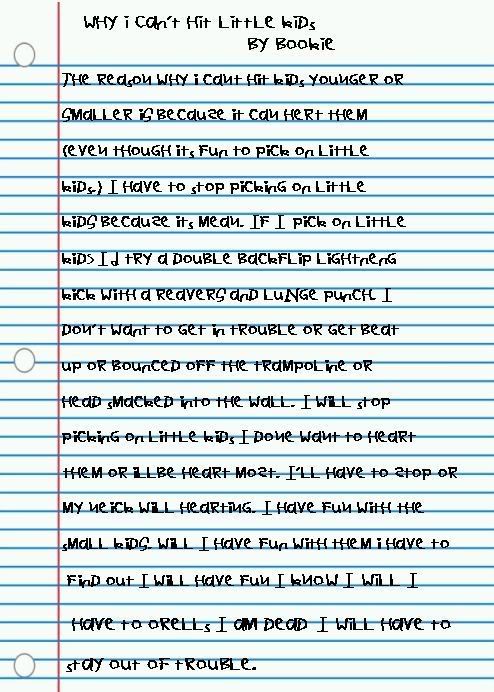 WHY i Can't Hit Little kids
BY Bookie
THE Reason WHY i Cant Hit kids Younger OR
SMALLER is Because it Can HeRt THEM
(even THough its Fun to Pick on Little
kids.) I Have to stop Picking on Little
kids Because its Mean. IF I Pick on Little
kids I'd tRY a Double Backflip Lightneng
kick With a Reavers and Lunge Punch. I
Don't Want to Get in tRouble OR Get Beat
up OR Bounced off the tRampoline OR
Head smacked into the Wall. I Will stop
Picking on Little kids I Done Want to HeaRt
them OR illBe HeaRt Most. I'LL Have to stop OR
My neick Will HeaRting. I Have Fun With the
small kids. Will I Have Fun With them i Have to
Find out I Will Have Fun I know I Will I
Have to orells I am Dead I Will Have to
stay out of tRouble.